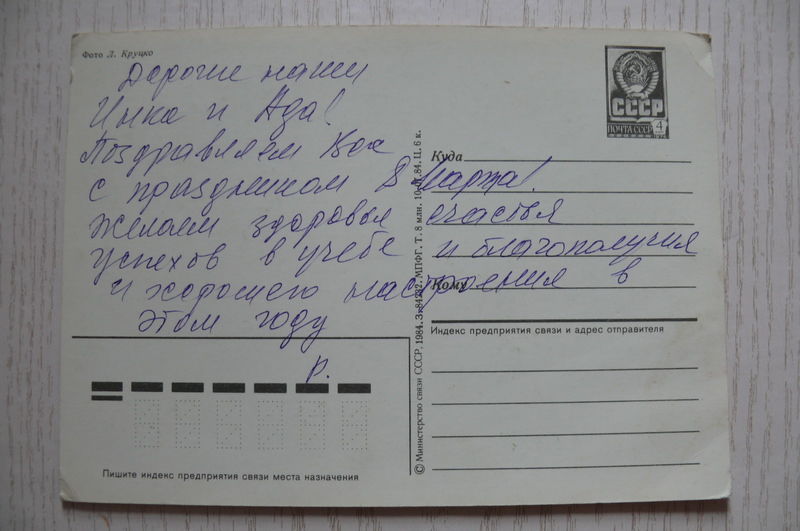 Фото Л. Круцко
Дорогие наши
Инна и Ада!
Поздравляем Вас
с праздником 8 Марта!
Желаем здоровья счастья
успехов в учебе и благополучия
и хорошего настроения в
этом году
р.
СССР
ПОЧТА СССР 4
Куда
Кому
Индекс предприятия связи и адрес отправителя
Пишите индекс предприятия связи места назначения
© Министерство связи СССР, 1984. З. МПФГ. Т. 8 млн. Ц. 6 к.